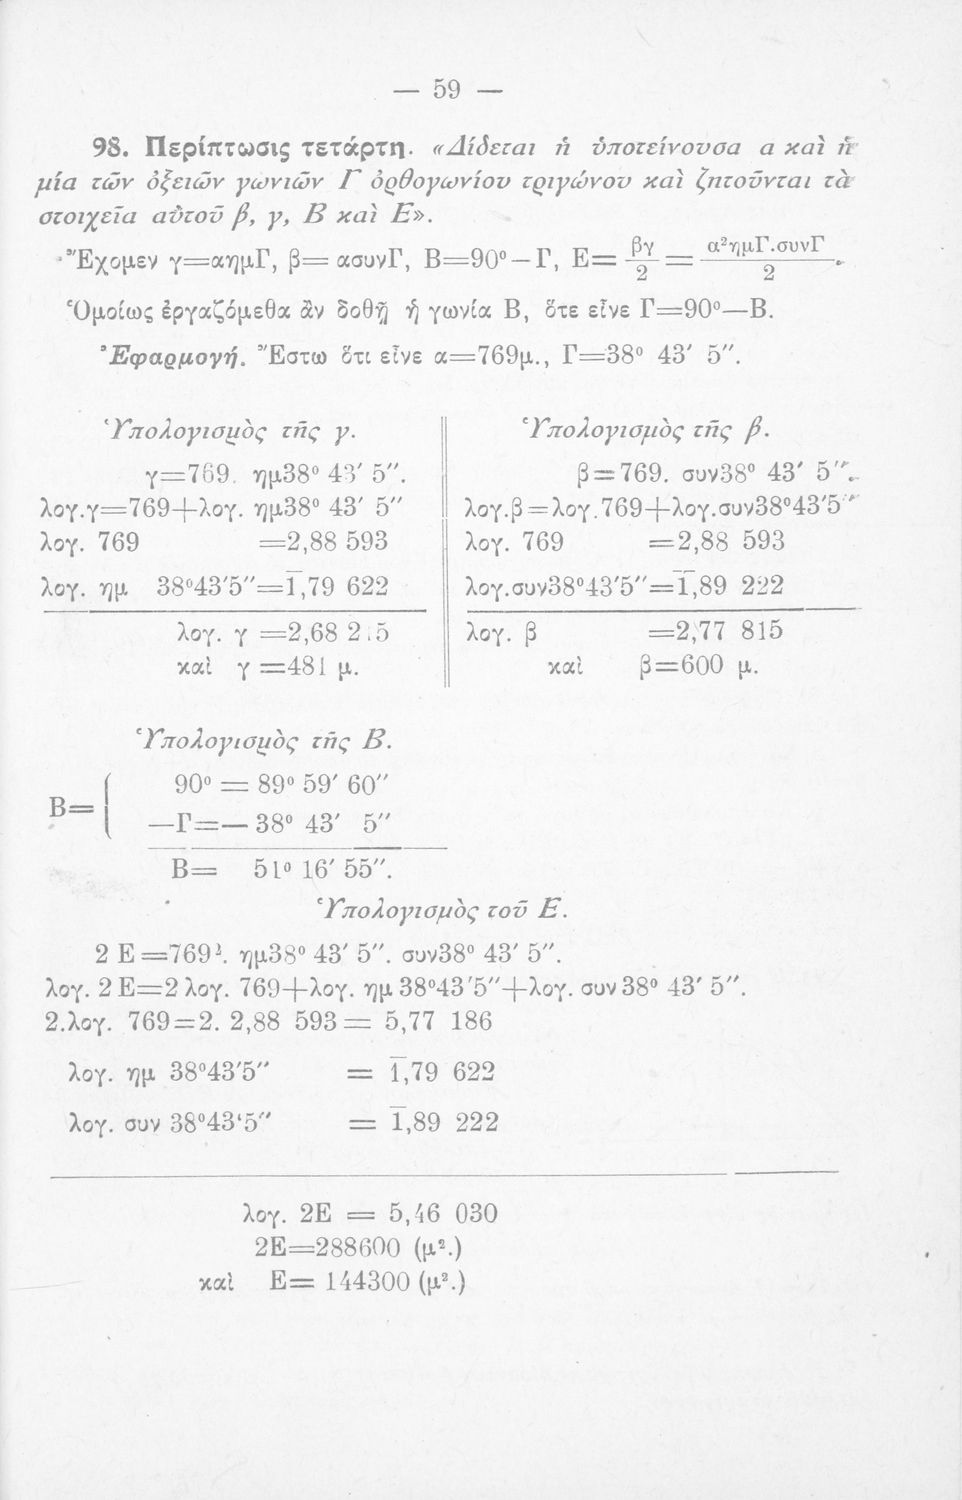 — 59 —
98. Περίπτωσις τετάρτη. «Δίδεται ἡ ὑποτείνουσα α καὶ ἡ
μία τῶν ὀξειῶν γωνιῶν Γ ὀρθογωνίου τριγώνου καὶ ζητοῦνται τὰ
στοιχεῖα αὐτοῦ β, γ, Β καὶ Ε».
Ἔχομεν γ=αημΓ, β=ασυνΓ, Β=90°—Γ, Ε= βγ/2 = α²ημΓ.συνΓ/2.
Ὁμοίως ἐργαζόμεθα ἂν δοθῇ ἡ γωνία Β, ὅτε εἶνε Γ=90°—Β.
Ἐφαρμογή. Ἔστω ὅτι εἶνε α=769μ., Γ=38° 43′ 5″.
Ὑπολογισμὸς τῆς γ.
γ=769. ημ38° 43′ 5″.
λογ.γ=769+λογ. ημ38° 43′ 5″
λογ. 769 =2,88 593
λογ. ημ 38°43′5″=1̅,79 622
λογ. γ =2,68 215
καὶ γ =481 μ.
Ὑπολογισμὸς τῆς β.
β=769. συν38° 43′ 5″.
λογ.β=λογ.769+λογ.συν38°43′5″
λογ. 769 =2,88 593
λογ.συν38°43′5″=1̅,89 222
λογ. β =2,77 815
καὶ β=600 μ.
Ὑπολογισμὸς τῆς Β.
90° = 89° 59′ 60″
Β=
—Γ=— 38° 43′ 5″
Β= 51° 16′ 55″.
Ὑπολογισμὸς τοῦ Ε.
2 Ε=769². ημ38° 43′ 5″. συν38° 43′ 5″.
λογ. 2 Ε=2 λογ. 769+λογ. ημ 38°43′5″+λογ. συν38° 43′ 5″.
2.λογ. 769=2. 2,88 593= 5,77 186
λογ. ημ 38°43′5″ = 1̅,79 622
λογ. συν 38°43‘5″ = 1̅,89 222
λογ. 2Ε = 5,46 030
2Ε=288600 (μ².)
καὶ Ε= 144300 (μ².)